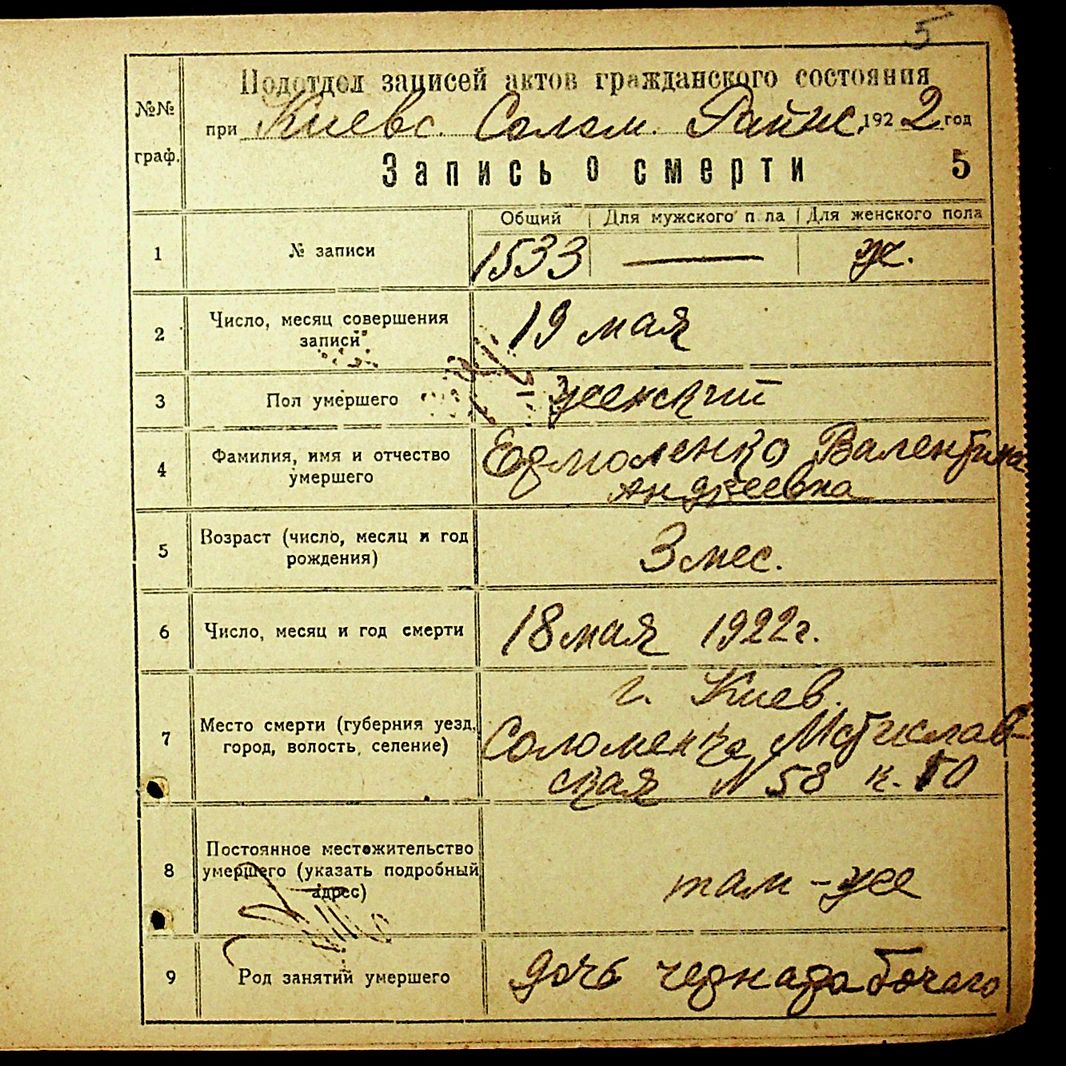 5
Подотдел записей актов гражданского состояния
№№ граф.
при Киевс. Солом. Райис. 1922 год
Запись о смерти 5
Общий Для мужского пола Для женского пола
1 № записи 1533 — ж.
2 Число, месяц совершения записи 19 мая
3 Пол умершего женский
4 Фамилия, имя и отчество умершего Валентина
Андреевна
5 Возраст (число, месяц и год рождения) 3 мес.
6 Число, месяц и год смерти 18 мая 1922 г.
7 Место смерти (губерния уезд, город, волость, селение) г. Киев.
Соломенка Мстислав-
ская № 58 к. 10
8 Постоянное местожительство умершего (указать подробный адрес) там-же
9 Род занятий умершего дочь чернарабочего